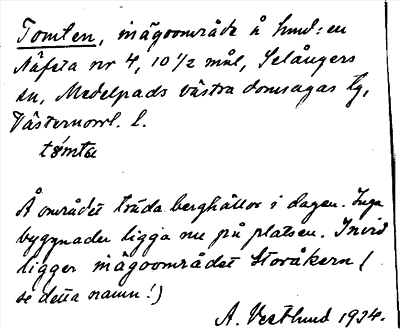 Tomten, inägoområde å hmd:en
Näfsta nr 4, 10 1/2 mål, Selångers
sn, Medelpads västra domsagas tg,
Västernorrl. l.
tómta
Å området träda berghällor i dagen. Inga
byggnader ligga nu på platsen. Invid
ligger inägoområdet Storåkern (
se detta namn!)
A. Vestlund 1934.